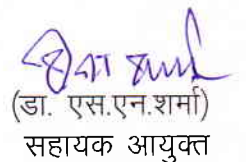 (डा. एस.एन.शर्मा)
सहायक आयुक्त